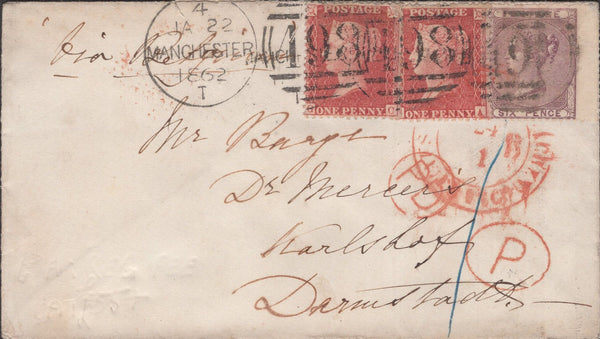 4
JA 22
MANCHESTER
1862
T
via
POSTAGE
ONE PENNY
POSTAGE
ONE PENNY
A
SIX PENCE
498
498
49
Mr Barge
Dr Mercer's
Karlshof
Darmstadt
P